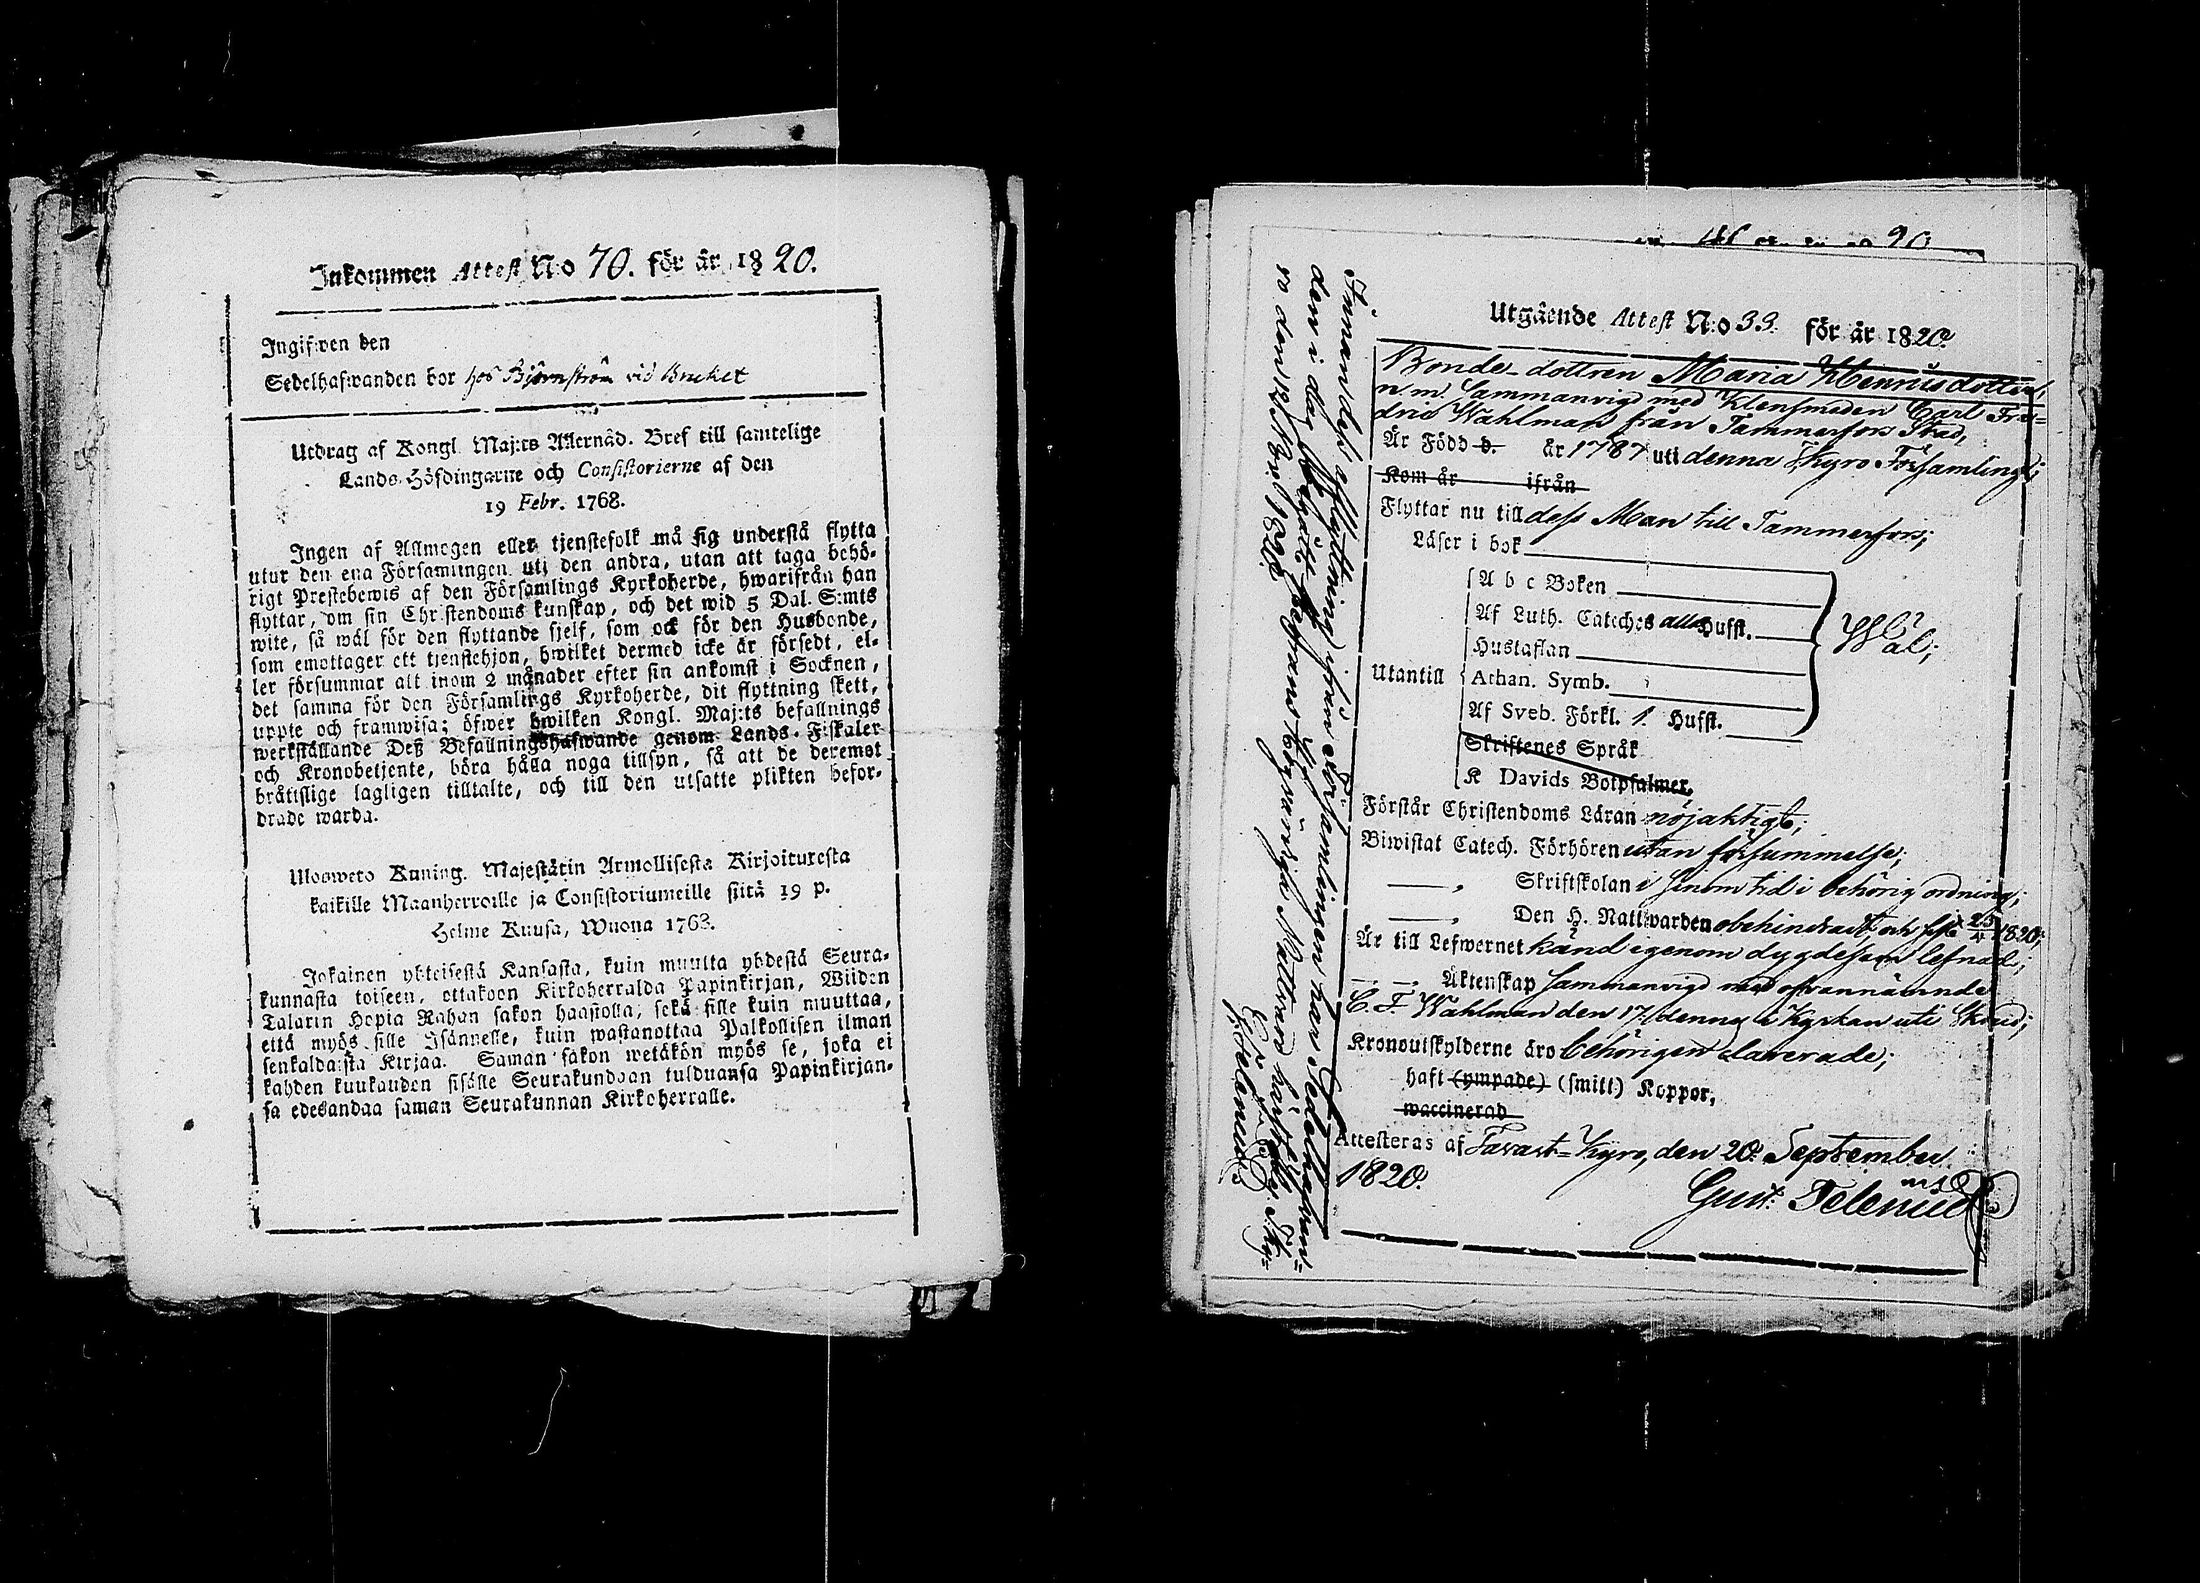 Inkommen Attest N:o 70. för år 1820.
Ingifwen den
Sedelhafwanden bor hos Björnström vid Bruket
Utdrag af Kongl. Maj:ts Allernåd. Bref till samtelige
Lands-Höfdingarne och Consistorierne af den
19 Febr. 1768.
Ingen af Allmogen eller tjenstefolk må sig understå flytta
utur den ena Församlingen uti den andra, utan att taga behö-
rigt Prestebewis af den Församlings Kyrkoherde, hwarifrån han
flyttar, om sin Christendoms kunskap, och det wid 5 Dal. S:mts
wite, så wäl för den flyttande sjelf, som ock för den Husbonde,
som emottager ett tjenstehjon, hwilket dermed icke är försedt, el-
ler försummar att inom 2 månader efter sin ankomst i Socknen,
det samma för den Församlings Kyrkoherde, dit flyttning skett,
uppte och framwisa; öfwer hwilken Kongl. Maj:ts befallnings
werkställande Deß Befallningshafwande genom Lands-Fiskaler
och Kronobetjente, böra hålla noga tillsyn, så att de deremot
bråttslige lagligen tilltalte, och till den utsatte plikten befor-
drade warda.
Uloswето Kuning. Majestätin Armollisesta Kirjoituxesta
kaikille Maanherroille ja Consistoriumeille siitä 19 p.
Helme Kuusa, Wuona 1768.
Jokainen yhteisestä Kansasta, kuin muulta yhdestä Seura-
kunnasta toiseen, ottakoon Kirkoherralda Papinkirjan, Wiiden
Talarin Hopia Rahan sakon haastolla, sekä sille kuin muuttaa,
että myös sille Isännelle, kuin wastanottaa Palkollisen ilman
senkaldaista Kirjaa. Saman sakon wetäkön myös se, joka ei
kahden kuukauden sisälle Seurakundaan tulduansa Papinkirjan-
sa edesandaa saman Seurakunnan Kirkoherralle.
Utgående Attest N:o 33. för år 1820.
Bonde-dottren Maria Henricsdotter,
n. m. Sammanvigd med Klensmeden Carl Fre-
dric Wahlman från Tammerfors Stad,
Är Född d. år 1787 uti denna Kyro Församling;
Kom år ifrån
Flyttar nu till dess Man till Tammerfors;
Läser i bok
Utantill
A b c Boken
Af Luth. Cateches alla Hufst.
Hustaflan
Athan. Symb.
Af Sveb. Förkl. 1. Hufst.
Skriftenes Språk
K Davids Botpsalmer.
Wäl;
Förstår Christendoms Läran nöjaktigt;
Biwistat Catech. Förhören utan försummelse;
Skriftskolan i sinom tid i behörig ordning;
Den H. Nattwarden obehindradt och sist 1820;
Är till Lefwernet känd igenom dygdesam lefnad;
Äktenskap Sammanvigd med ofvannämnde
C. F. Wahlman den 17 dennes i Kyrkan uti
Kronoutskylderne äro behörigen clarerade;
haft (ympade) (smitt) Koppor,
waccinerad
Attesteras af Tavast-Kyro, den 20. September
1820. Gust. Felenius
Innan dess afflyttning ifrån Församlingen har Sedelhafvan-
den i dag
v den